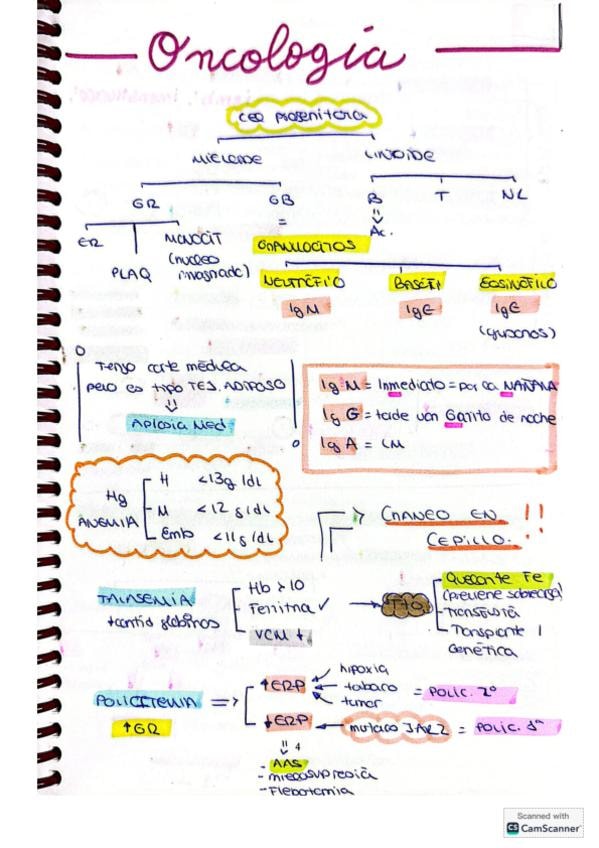 Oncología
CED PROGENITORA
MIELOIDE LINFOIDE
GR GB B T NL
=
Ac.
ER PLAQ MONOCIT
(nucleo
invaginado)
GRANULOCITOS
NEUTRÓFILO BASÓFI EOSINÓFILO
IgM IgE IgE
(gusanos)
Tengo corte médica
pelo es tipo TEJ. ADIPOSO
Aplasia Med
IgM = Inmediato = por la MAÑANA
IgG = tarde van Gatito de noche
IgA = LM
Hg
ANEMIA
H <13g/dL
M <12g/dL
Emb <11g/dL
CRANEO EN !!
CEPILLO.
TALASEMIA
+cantid globinos
Hb > 10
Ferritna ✓
VCM ↓
TTO
Quelante Fe
(previene sobrecarga)
- Transfusiã
- Transplante
Genética
POLICITEMIA =>
↑GR
↑ERP
hipoxia
tabaco
tumor
= POLIC. 2º
↓ERP
mutaco JAK2 = POLIC. 1ª
4
AAS
- mielosupresiã
- Flebotomia
Scanned with
CS CamScanner